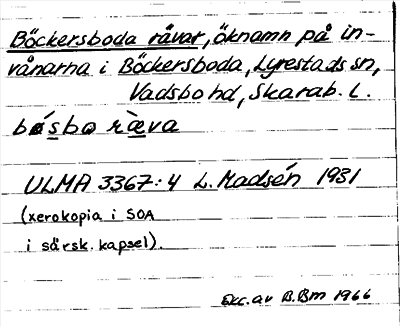 Böckersboda råvar, öknamn på in-
vånarna i Böckersboda, Lyrestads sn,
Vadsbo hd, Skarab. l.
bǿsbo ræ̀va
ULMA 3367:4 L. Madsén 1931
(xerokopia i SOA
i särsk. kapsel).
Exc. av B.Bm 1966